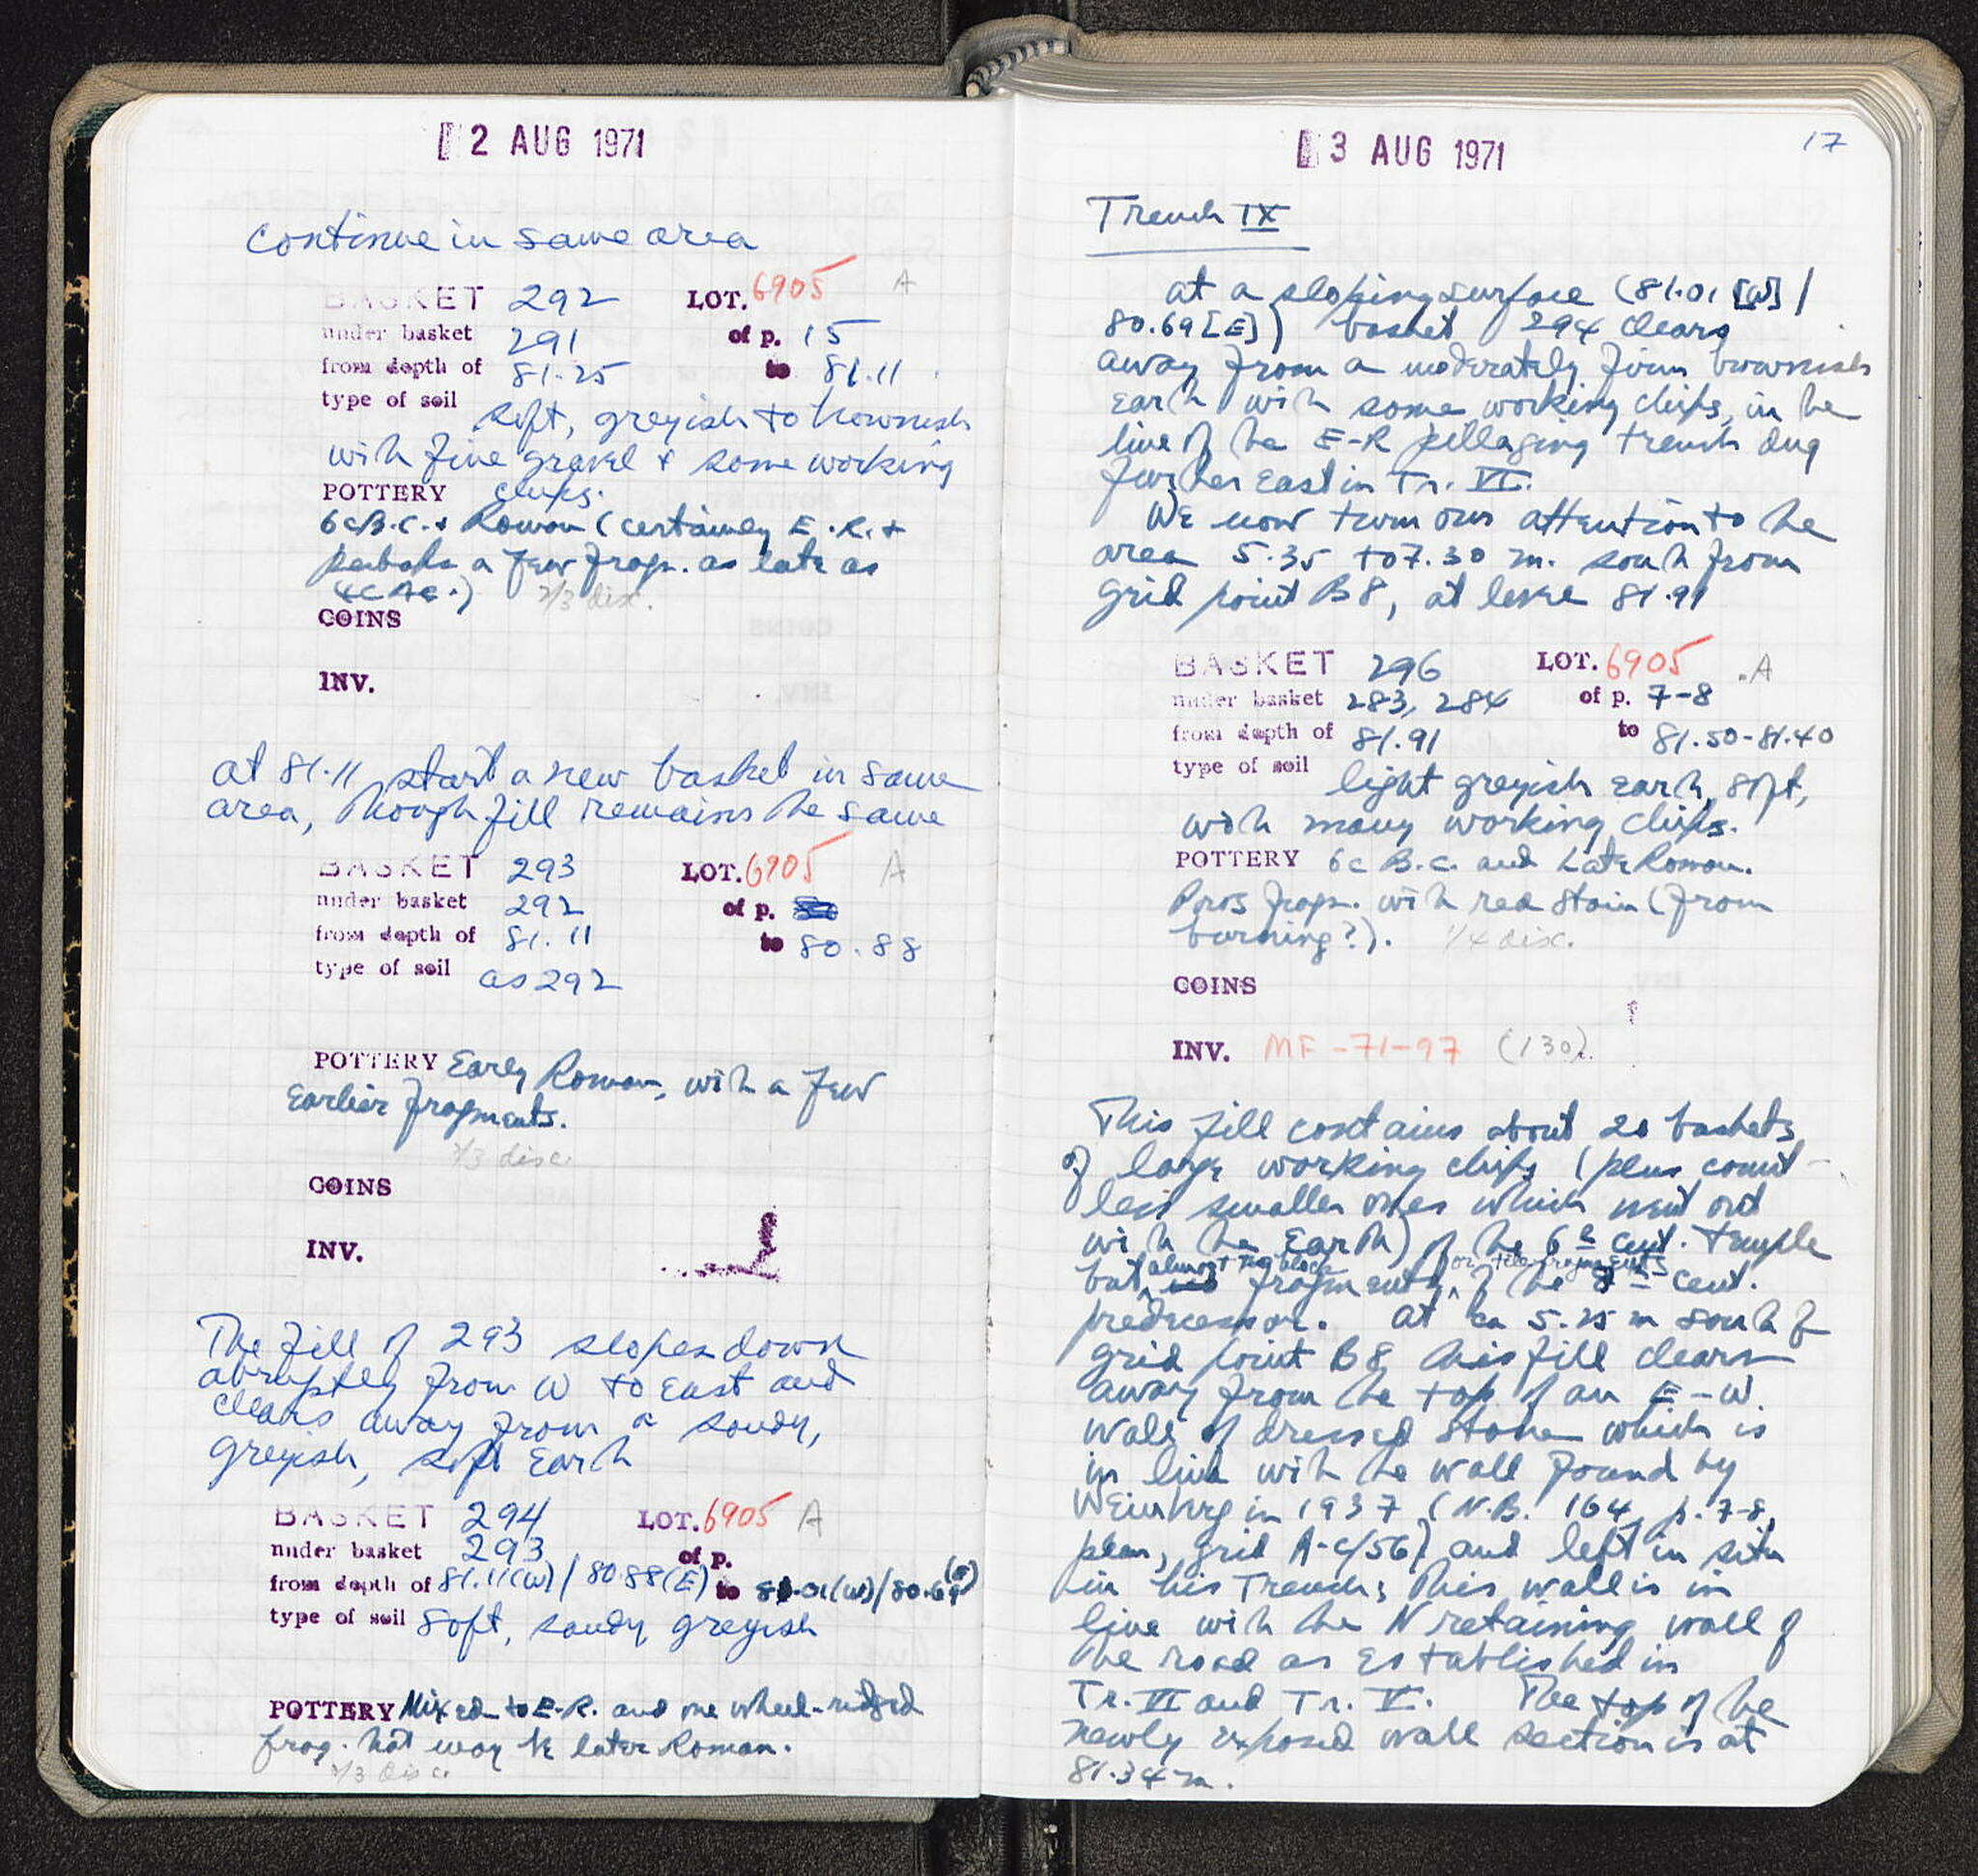 2 AUG 1971
continue in same area
BASKET 292 LOT. 6905 A
under basket 291 of p. 15
from depth of 81.25 to 81.11
type of soil
soft, greyish to brownish
with fine gravel & some working
POTTERY chips.
6c B.C. & Roman (certainly E.R. &
perhaps a few frags. as late as
4c AC.) 2/3 disc.
COINS
INV.
at 81.11 start a new basket in same
area, though fill remains the same
BASKET 293 LOT. 6905 A
under basket 292 of p.
from depth of 81.11 to 80.88
type of soil as 292
POTTERY Early Roman, with a few
Earlier fragments.
2/3 disc
COINS
INV.
The fill of 293 slopes down
abruptly from W to East and
clears away from a sandy,
greyish, soft Earth
BASKET 294 LOT. 6905 A
under basket 293 of p.
from depth of 81.11(W)/80.88(E) to 81.01(W)/80.69(E)
type of soil soft, sandy greyish
POTTERY Mixed to E.R. and one wheel-ridged
frag. that may be later Roman.
2/3 disc.
3 AUG 1971
17
Trench IX
at a sloping surface (81.01 [W] /
80.69 [E]) basket 294 clears
away from a moderately firm brownish
earth with some working chips, in the
line of the E-R pillaging trench dug
further East in Tr. VI.
We now turn our attention to the
area 5.35 to 7.30 m. south from
grid point B8, at level 81.91
BASKET 296 LOT. 6905 A
under basket 283, 284 of p. 7-8
from depth of 81.91 to 81.50-81.40
type of soil
light greyish earth, soft,
with many working chips.
POTTERY 6c B.C. and Late Roman.
Poros frags. with red stain (from
burning?). 1/4 disc.
COINS
INV. MF-71-97 (130)
This fill contains about 20 baskets
of large working chips (plus count-
less smaller ones which went out
with the Earth) of the 6th cent. temple
almost no block or tile fragments
but fragments, of the cent.
predecessor. At ca 5.25 m south of
grid point B8 this fill clears
away from the top of an E-W
wall of dressed stone which is
in line with the wall found by
Weinberg in 1937 (N.B. 164, p. 7-8,
plan, grid A-C/56) and left in situ
in his Trench; This wall is in
line with the N retaining wall of
the road as Established in
Tr. VI and Tr. V. The top of the
newly exposed wall section is at
81.34 m.